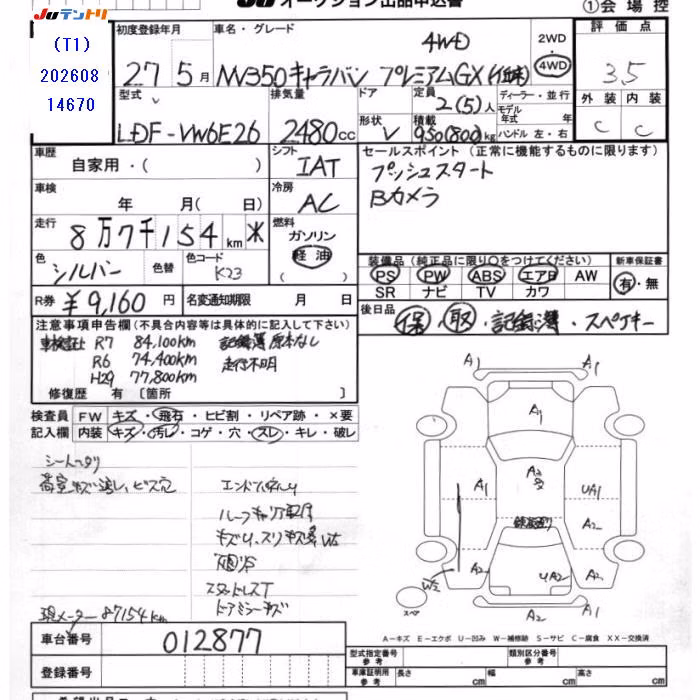 JUテントリ
オークション出品申込書
①会場控
(T1)
202608
14670
初度登録年月
27年5月
車名・グレード
4WD
NV350キャラバン プレミアムGX
2WD
4WD
評価点
3.5
外装 内装
C C
型式
LDF-VW6E26
排気量
2480cc
ドア
形状 V
定員
2(5)人
積載
950(800)kg
ディーラー・並行
モデル
年式 年
ハンドル 左・右
車歴
自家用・( )
シフト
IAT
セールスポイント (正常に機能するものに限ります)
プッシュスタート
Bカメラ
車検
年 月(日)
冷房
AC
走行
8万7千154km
燃料
ガソリン
軽油
( )
色
シルバー
色替
色コード
K23
装備品(純正品に限り○をつけてください)
PS PW ABS エアB AW
SR ナビ TV カワ
新車保証書
有・無
R券 ¥9,160円
名変通知期限 月 日
後日品
保・取・記録簿・スペアキー
注意事項申告欄(不具合内容等は具体的に記入して下さい)
車検証 R7 84,100km 記録簿原本なし
R6 74,400km 走行不明
H29 77,800km
修復歴 有〔箇所 〕
検査員
記入欄
FW キズ・飛石・ヒビ割・リペア跡・×要
内装 キズ・汚レ・コゲ・穴・スレ・キレ・破レ
シートヘタリ
荷室キズ
ビス穴
ルーフキャリア
スタットレスT
ドアミラーキズ
現メーター87154km
A A1
A1
A2
A1 UA1
A2
A2 UA2 A2
W2
A2 A1
スペア
A-キズ E-エクボ U-凹み W-補修跡 S-サビ C-腐食 XX-交換済
車台番号 012877
登録番号
型式指定番号
参考
類別区分番号
参考
車庫証明用
参考
長さ cm 幅 cm 高さ cm